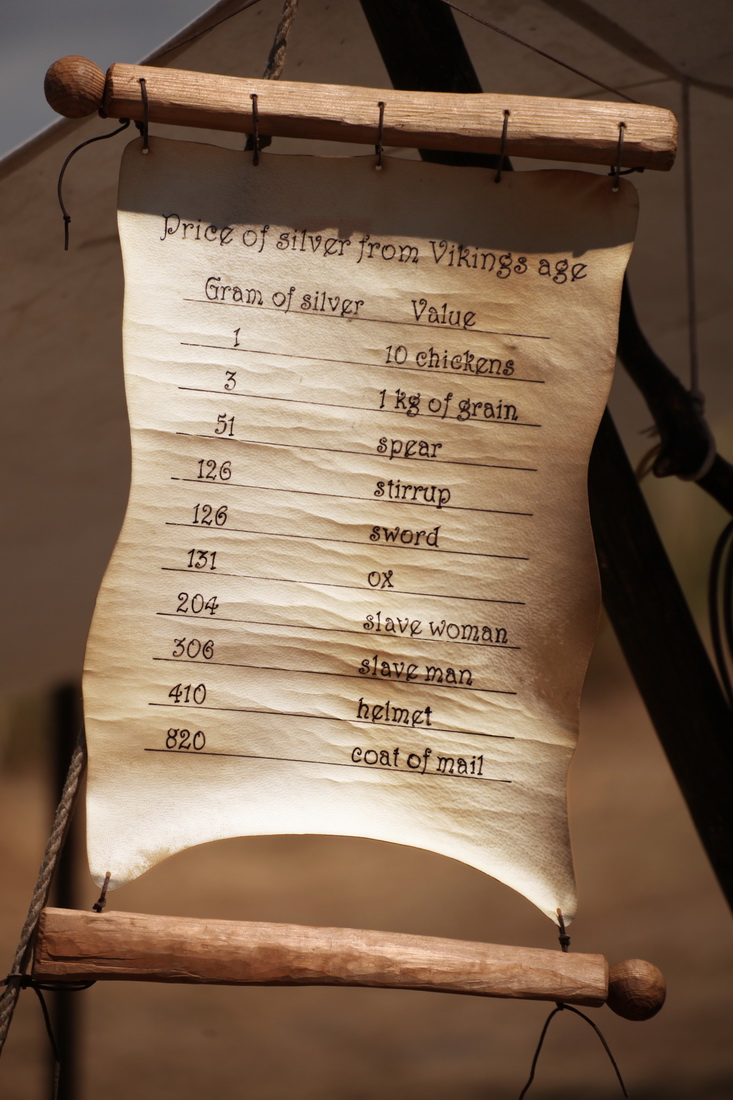 Price of silver from Vikings age
Gram of silver Value
1 10 chickens
3 1 kg of grain
51 spear
126 stirrup
126 sword
131 ox
204 slave woman
306 slave man
410 helmet
820 coat of mail